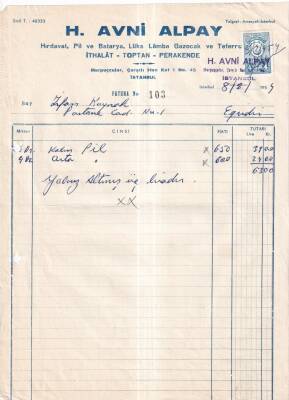 Sicil T. : 40333
Telgraf: Amaçalı-İstanbul
H. AVNİ ALPAY
Hırdavat, Pil ve Batarya, Lüks Lâmba Gazocak ve Teferru
İTHALÂT - TOPTAN - PERAKENDE
Marpuççular, Çarşılı Han Kat 1 No. 45
İSTANBUL
H. AVNİ ALPAY
İSTANBUL
FATURA No 103
İstanbul 8/2/
Say Kaynak
Cad. No:1
Eğridir
Miktarı CİNSİ FİATI TUTARI
Lira Kr.
Kalın Pil x 650 3900
Orta " x 600 2400
6300
Yalnız Altmış üç liradır.
xx